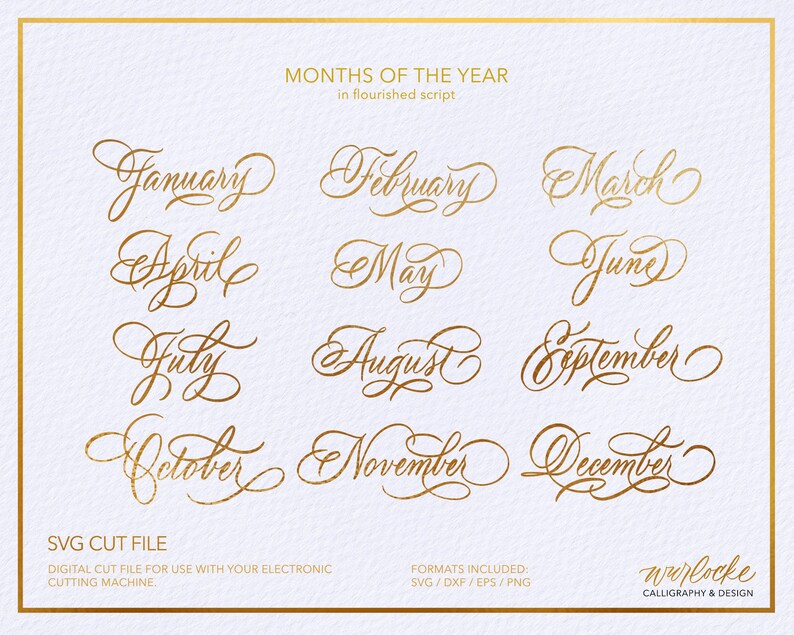 MONTHS OF THE YEAR
in flourished script
January February March
April May June
July August September
October November December
SVG CUT FILE
DIGITAL CUT FILE FOR USE WITH YOUR ELECTRONIC
CUTTING MACHINE.
FORMATS INCLUDED:
SVG / DXF / EPS / PNG
wurlocke
CALLIGRAPHY & DESIGN